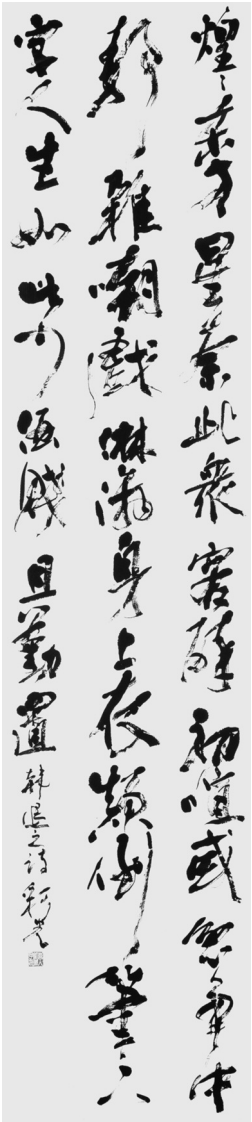 煌々東方星奈此衆客醉初喧或忿爭中
靜雜嘲戲淋漓身上衣顛倒筆下
字人生如此少酒賤且勤置
韓退之詩